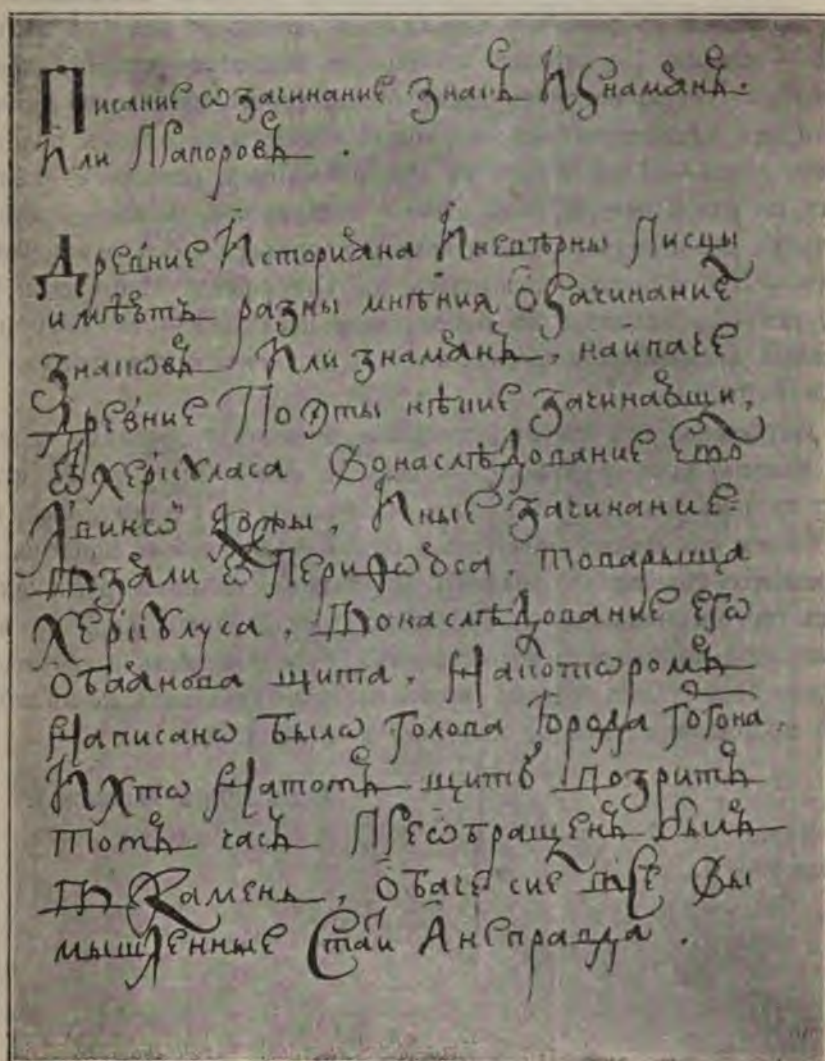 Писание ѡ зачинание знакъ И Знамянъ.
Или Прапоровъ.
Древние Историяна Иневѣрны Писцы
имѣютъ разны мнѣния Ѻ Зачинание
знаковъ Или знамянъ, наипаче
Древние Поэты нѣкие зачинавши,
ѿ Херкꙋласа Ѿонаслѣдование Его
Или знание
вꙁяли ѿ товарыща
Херкꙋлуса, Понаслѣдование его
Ѻбаянова щита, Накоторомъ
Написанѡ былѡ голова города гоѳгона,
И Хтѡ Натотъ щитъ позритъ
тотъ часъ Преѡбращенъ былъ
въ Камень, Ѻбаче сие все Ѿы
мышленные Стаи Анеправда.